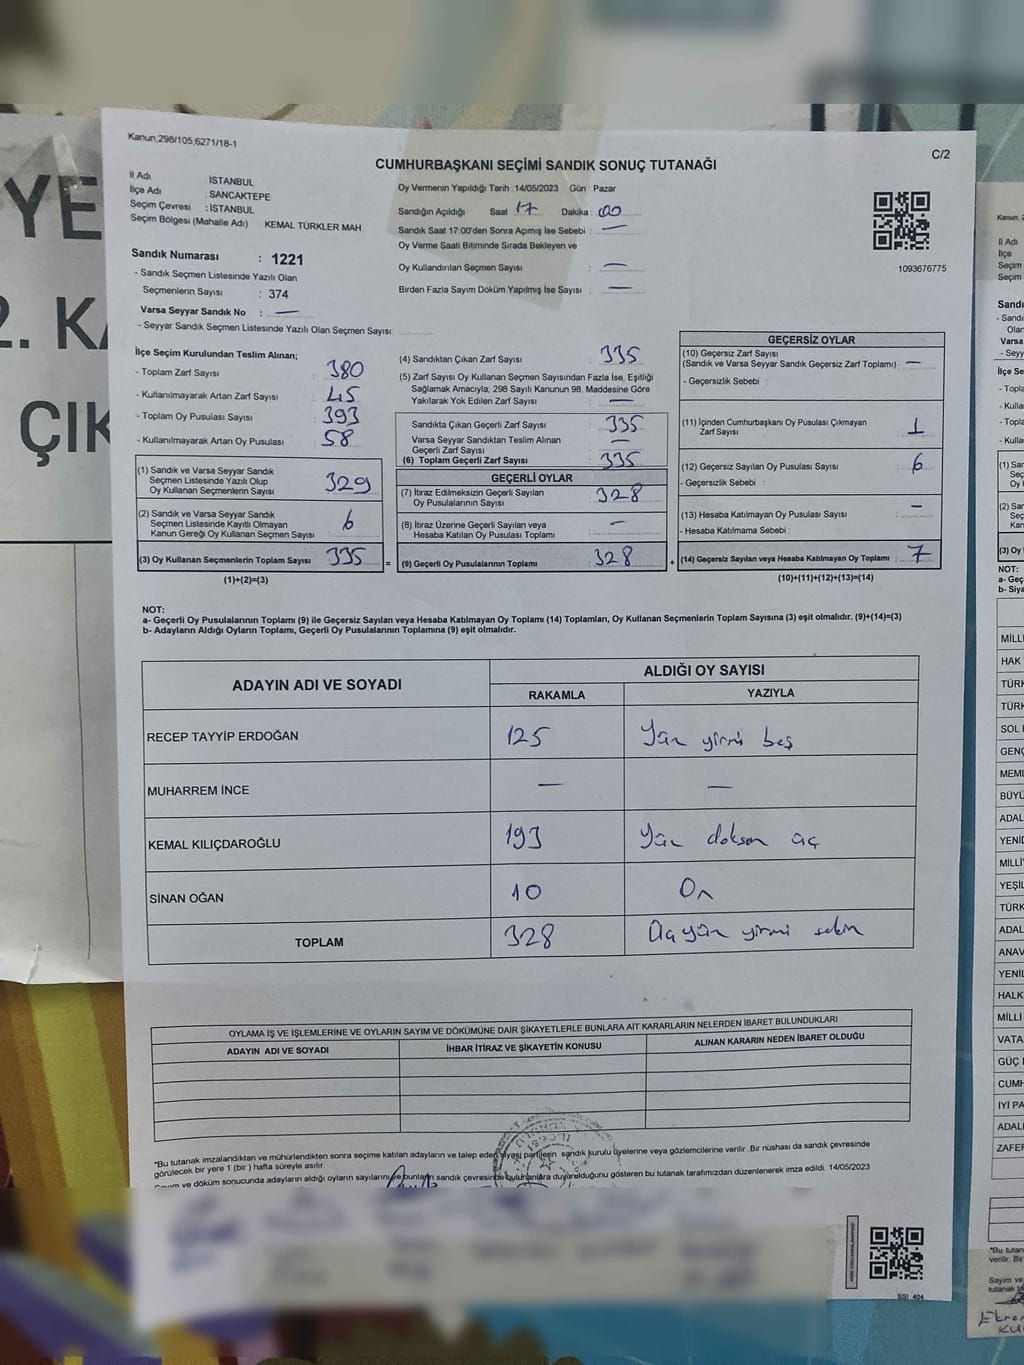 Kanun;298/105,6271/18-1
C/2
CUMHURBAŞKANI SEÇİMİ SANDIK SONUÇ TUTANAĞI
İl Adı : İSTANBUL
İlçe Adı : SANCAKTEPE
Seçim Çevresi : İSTANBUL
Seçim Bölgesi (Mahalle Adı) : KEMAL TÜRKLER MAH
Oy Vermenin Yapıldığı Tarih : 14/05/2023 Gün : Pazar
Sandığın Açıldığı Saat : 17 Dakika : 00
Sandık Saat 17:00'den Sonra Açımış İse Sebebi : —
Oy Verme Saati Bitiminde Sırada Bekleyen ve
Oy Kullandırılan Seçmen Sayısı : —
Birden Fazla Sayım Döküm Yapılmış İse Sayısı : —
1093676775
Sandık Numarası : 1221
- Sandık Seçmen Listesinde Yazılı Olan
Seçmenlerin Sayısı : 374
Varsa Seyyar Sandık No : —
- Seyyar Sandık Seçmen Listesinde Yazılı Olan Seçmen Sayısı:
İlçe Seçim Kurulundan Teslim Alınan;
- Toplam Zarf Sayısı : 380
- Kullanılmayarak Artan Zarf Sayısı : 45
- Toplam Oy Pusulası Sayısı : 393
- Kullanılmayarak Artan Oy Pusulası : 58
(1) Sandık ve Varsa Seyyar Sandık
Seçmen Listesinde Yazılı Olup
Oy Kullanan Seçmenlerin Sayısı : 329
(2) Sandık ve Varsa Seyyar Sandık
Seçmen Listesinde Kayıtlı Olmayan
Kanun Gereği Oy Kullanan Seçmen Sayısı : 6
(3) Oy Kullanan Seçmenlerin Toplam Sayısı : 335
(1)+(2)=(3)
(4) Sandıktan Çıkan Zarf Sayısı : 335
(5) Zarf Sayısı Oy Kullanan Seçmen Sayısından Fazla İse, Eşitliği
Sağlamak Amacıyla; 298 Sayılı Kanunun 98. Maddesine Göre
Yakılarak Yok Edilen Zarf Sayısı : —
Sandıkta Çıkan Geçerli Zarf Sayısı : 335
Varsa Seyyar Sandıktan Teslim Alınan
Geçerli Zarf Sayısı : —
(6) Toplam Geçerli Zarf Sayısı : 335
GEÇERLİ OYLAR
(7) İtiraz Edilmeksizin Geçerli Sayılan
Oy Pusulalarının Sayısı : 328
(8) İtiraz Üzerine Geçerli Sayılan veya
Hesaba Katılan Oy Pusulası Toplamı : —
= (9) Geçerli Oy Pusulalarının Toplamı : 328
GEÇERSİZ OYLAR
(10) Geçersiz Zarf Sayısı
(Sandık ve Varsa Seyyar Sandık Geçersiz Zarf Toplamı) : —
- Geçersizlik Sebebi :
(11) İçinden Cumhurbaşkanı Oy Pusulası Çıkmayan
Zarf Sayısı : 1
(12) Geçersiz Sayılan Oy Pusulası Sayısı : 6
- Geçersizlik Sebebi :
(13) Hesaba Katılmayan Oy Pusulası Sayısı : —
- Hesaba Katılmama Sebebi :
+ (14) Geçersiz Sayılan veya Hesaba Katılmayan Oy Toplamı : 7
(10)+(11)+(12)+(13)=(14)
NOT:
a- Geçerli Oy Pusulalarının Toplamı (9) ile Geçersiz Sayılan veya Hesaba Katılmayan Oy Toplamı (14) Toplamları, Oy Kullanan Seçmenlerin Toplam Sayısına (3) eşit olmalıdır. (9)+(14)=(3)
b- Adayların Aldığı Oyların Toplamı, Geçerli Oy Pusulalarının Toplamına (9) eşit olmalıdır.
ADAYIN ADI VE SOYADI ALDIĞI OY SAYISI
RAKAMLA YAZIYLA
RECEP TAYYİP ERDOĞAN 125 Yüz yirmi beş
MUHARREM İNCE — —
KEMAL KILIÇDAROĞLU 193 Yüz doksan üç
SİNAN OĞAN 10 On
TOPLAM 328 Üçyüz yirmi sekiz
OYLAMA İŞ VE İŞLEMLERİNE VE OYLARIN SAYIM VE DÖKÜMÜNE DAİR ŞİKAYETLERLE BUNLARA AİT KARARLARIN NELERDEN İBARET BULUNDUKLARI
ADAYIN ADI VE SOYADI İHBAR İTİRAZ VE ŞİKAYETİN KONUSU ALINAN KARARIN NEDEN İBARET OLDUĞU
*Bu tutanak imzalandıktan ve mühürlendikten sonra seçime katılan adayların ve talep eden siyasi partilerin sandık kurulu üyelerine veya gözlemcilerine verilir. Bir nüshası da sandık çevresinde
görülecek bir yere 1 (bir) hafta süreyle asılır.
Sayım ve döküm sonucunda adayların aldığı oyların sayılarını ve bunların sandık çevresinde bulunanlara duyurulduğunu gösteren bu tutanak tarafımızdan düzenlenerek imza edildi. 14/05/2023
SSI_404
YE
2. KA
ÇIK
Kanun; 2
İl Adı
İlçe
Seçim
Seçim
Sandı
- Sandı
Olan
Varsa
- Seyy
İlçe Se
- Topla
- Kulla
- Topla
- Kulla
(1) San
Seç
Oy
(2) San
Seç
Kan
(3) Oy
NOT:
a- Geç
b- Siya
MİLLİ
HAK
TÜRK
TÜRK
SOL
GENÇ
MEML
BÜYÜ
ADAL
YENİD
MİLLİY
YEŞİL
TÜRK
ADAL
ANAV
YENİL
HALK
MİLLİ
VATA
GÜÇ
CUMH
İYİ PA
ADAL
ZAFER
*Bu tutan
verilir. Bir
Sayım ve
tutanak